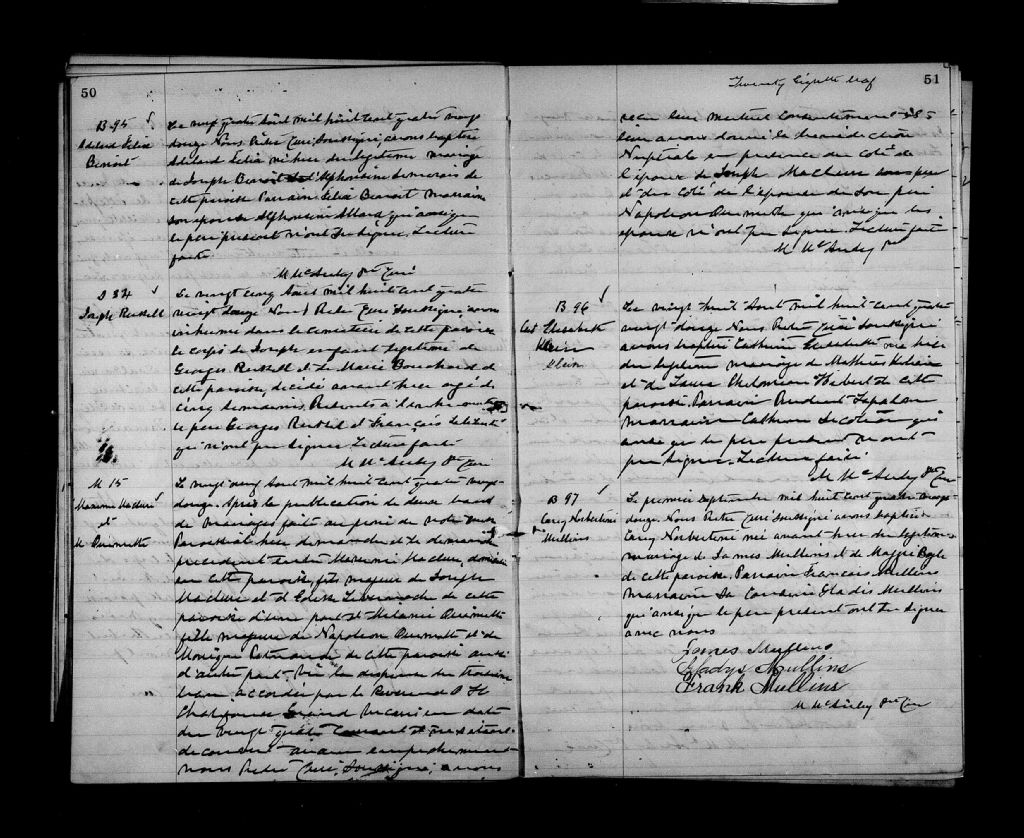 50
B 95
Adelard Felix
Benoit
Le vingt quatre Août mil huit cent quatre vingt
douze Nous Prêtre Curé Soussigné, avons baptisé
Adelard Felix né hier du légitime mariage
de Joseph Benoit et d'Alphonsine Demarais de
cette paroisse Parrain Felix Benoit Marraine
son épouse Alphonsine Allard qui ainsi que
le père présent n'ont pu signer. Lecture
faite
M McAuley Ptre Curé
S 34
Joseph Russell
Le vingt cinq Août mil huit cent quatre
vingt douze Nous Prêtre Curé Soussigné avons
inhumé dans le cimetière de cette paroisse
le corps de Joseph enfant légitime de
Georges Russell et de Marie Bouchard de
cette paroisse, décédé avant hier agé de
cinq semaines. Présents à l'inhumation
le père Georges Russell et François
qui n'ont pu signer. Lecture faite
M McAuley Ptre Curé
M 15
Maxime Mathieu
et
M Ouimette
Le vingt neuf Août mil huit cent quatre vingt
douze. Après la publication de deux bans
de mariages faite au prône de notre messe
Paroissiale
précédent entre Maxime Mathieu, domicilié
en cette paroisse, fils majeur de Joseph
Mathieu et d'Edith de cette
paroisse d'une part et Mélanie Ouimette
fille majeure de Napoleon Ouimette et de
Monique de cette paroisse aussi
d'autre part. Vu la dispense du troisième
ban accordée par le Révérend
Grand Vicaire en date
du vingt quatre courant et ne s'étant
découvert aucun empêchement
nous Prêtre Curé, Soussigné, avons
Twenty Eighth leaf
51
reçu leur mutuel consentement
leur avons donné la bénédiction
Nuptiale en présence du coté de
l'époux de Joseph Mathieu son père
et du coté de l'épouse de son père
Napoleon Ouimette qui ainsi que les
époux n'ont pu signer. Lecture faite
M McAuley Ptre
B 96
Cat Elisabeth
Klein
Klein
Le vingt huit Août mil huit cent quatre
vingt douze Nous Prêtre Curé Soussigné
avons baptisé Catherine Elisabeth née hier
du légitime mariage de Mathias Klein
et de Laura Hebert de cette
paroisse Parrain Prudent
Marraine Catherine qui
ainsi que le père présent n'ont
pu signer. Lecture faite
M McAuley Ptre Curé
B 97
Carey Norbertine
Mullins
Le premier Septembre mil huit cent quatre vingt
douze. Nous Prêtre Curé Soussigné avons baptisé
Carey Norbertine née avant hier du légitime
mariage de James Mullins et de Maggie Boyle
de cette paroisse. Parrain François Mullins
marraine sa cousine Gladis Mullins
qui ainsi que le père présent ont signé
avec nous
James Mullins
Gladys Mullins
Frank Mullins
M McAuley Ptre Curé